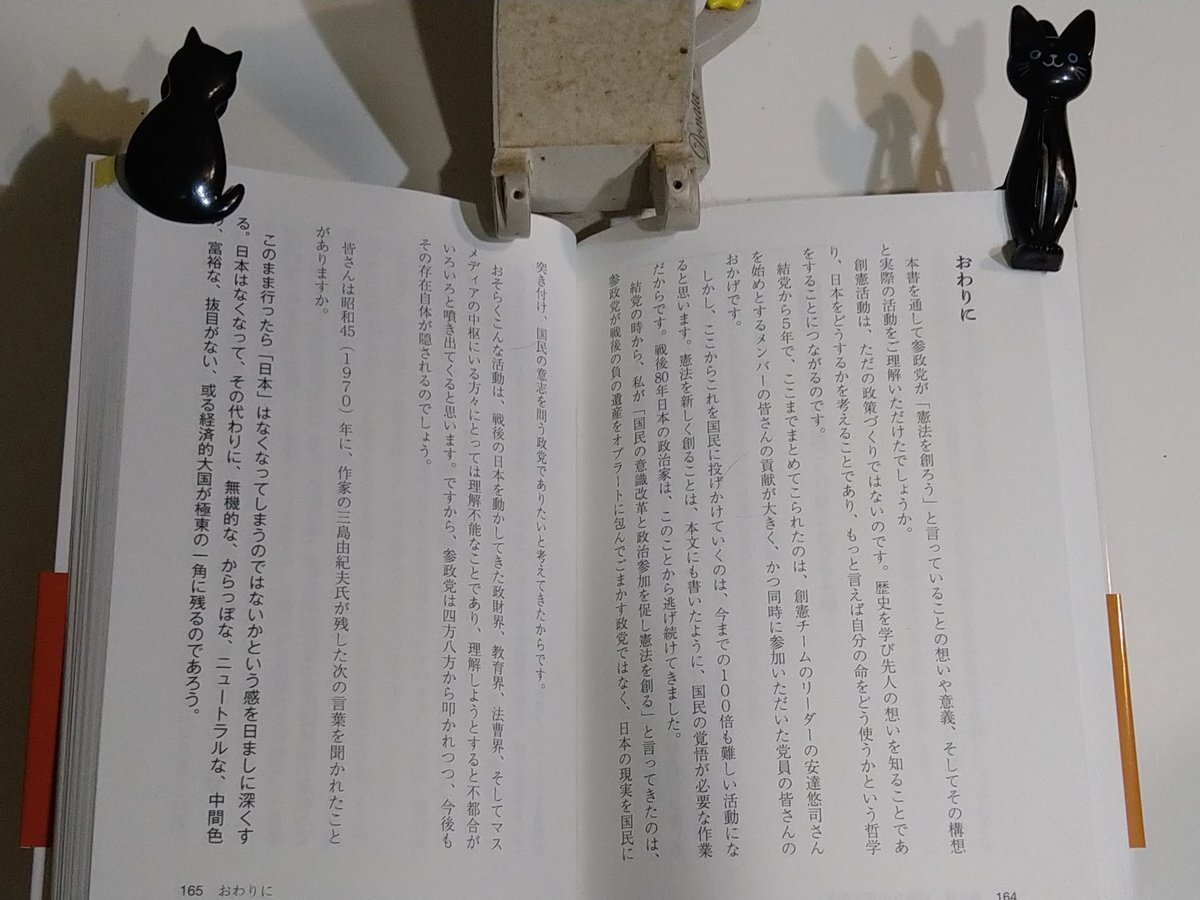 おわりに
本書を通して参政党が「憲法を創ろう」と言っていることの想いや意義、そしてその構想
と実際の活動をご理解いただけたでしょうか。
創憲活動は、ただの政策づくりではないのです。歴史を学び先人の想いを知ることであ
り、日本をどうするかを考えることであり、もっと言えば自分の命をどう使うかという哲学
をすることにつながるのです。
結党から5年で、ここまでまとめてこられたのは、創憲チームのリーダーの安達悠司さん
を始めとするメンバーの皆さんの貢献が大きく、かつ同時に参加いただいた党員の皆さんの
おかげです。
しかし、ここからこれを国民に投げかけていくのは、今までの100倍も難しい活動にな
ると思います。憲法を新しく創ることは、本文にも書いたように、国民の覚悟が必要な作業
だからです。戦後80年日本の政治家は、このことから逃げ続けてきました。
結党の時から、私が「国民の意識改革と政治参加を促し憲法を創る」と言ってきたのは、
参政党が戦後の負の遺産をオブラートに包んでごまかす政党ではなく、日本の現実を国民に
164
突き付け、国民の意志を問う政党でありたいと考えてきたからです。
おそらくこんな活動は、戦後の日本を動かしてきた政財界、教育界、法曹界、そしてマス
メディアの中枢にいる方々にとっては理解不能なことであり、理解しようとすると不都合が
いろいろと噴き出てくると思います。ですから、参政党は四方八方から叩かれつつ、今後も
その存在自体が隠されるのでしょう。
皆さんは昭和45（1970）年に、作家の三島由紀夫氏が残した次の言葉を聞かれたこと
がありますか。
このまま行ったら「日本」はなくなってしまうのではないかという感を日ましに深くす
る。日本はなくなって、その代わりに、無機的な、からっぽな、ニュートラルな、中間色
、富裕な、抜目がない、或る経済的大国が極東の一角に残るのであろう。
165 おわりに
Donald